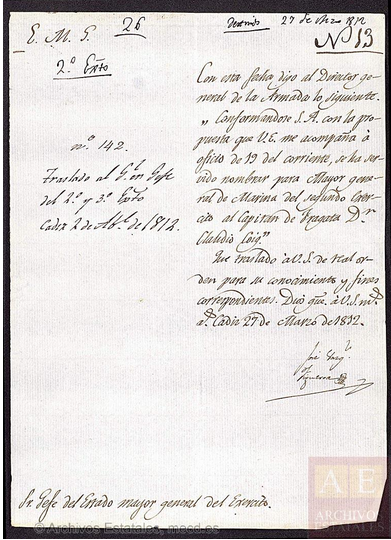 E. M. G. 26
27 de Marzo 1812
N 13
2.º Exto
Con esta fecha digo al Director
general de la Armada lo siguiente.
„Conformandose S.A. con la pro-
puesta que V.E. me acompaña á
oficio de 19 del corriente, se ha ser-
vido nombrar para Mayor gene-
ral de Marina del segundo Exer-
cito al Capitan de Fragata Dn
Claudio
Que traslado á V.S. de real or-
den para su conocimiento y fines
correspondientes. Dios gue. á V.S. m.s
a.s Cadiz 27 de Marzo de 1812.
n.º 142.
Traslado al Gl. en Gefe
del 2.º y 3.º Exto
Cadiz 2 de Abl. de 1812.
José
Figueroa
Sr. Gefe del Estado mayor general del Exercito.
© Archivos Estatales, mecd.es
AE
ARCHIVOS
ESTATALES